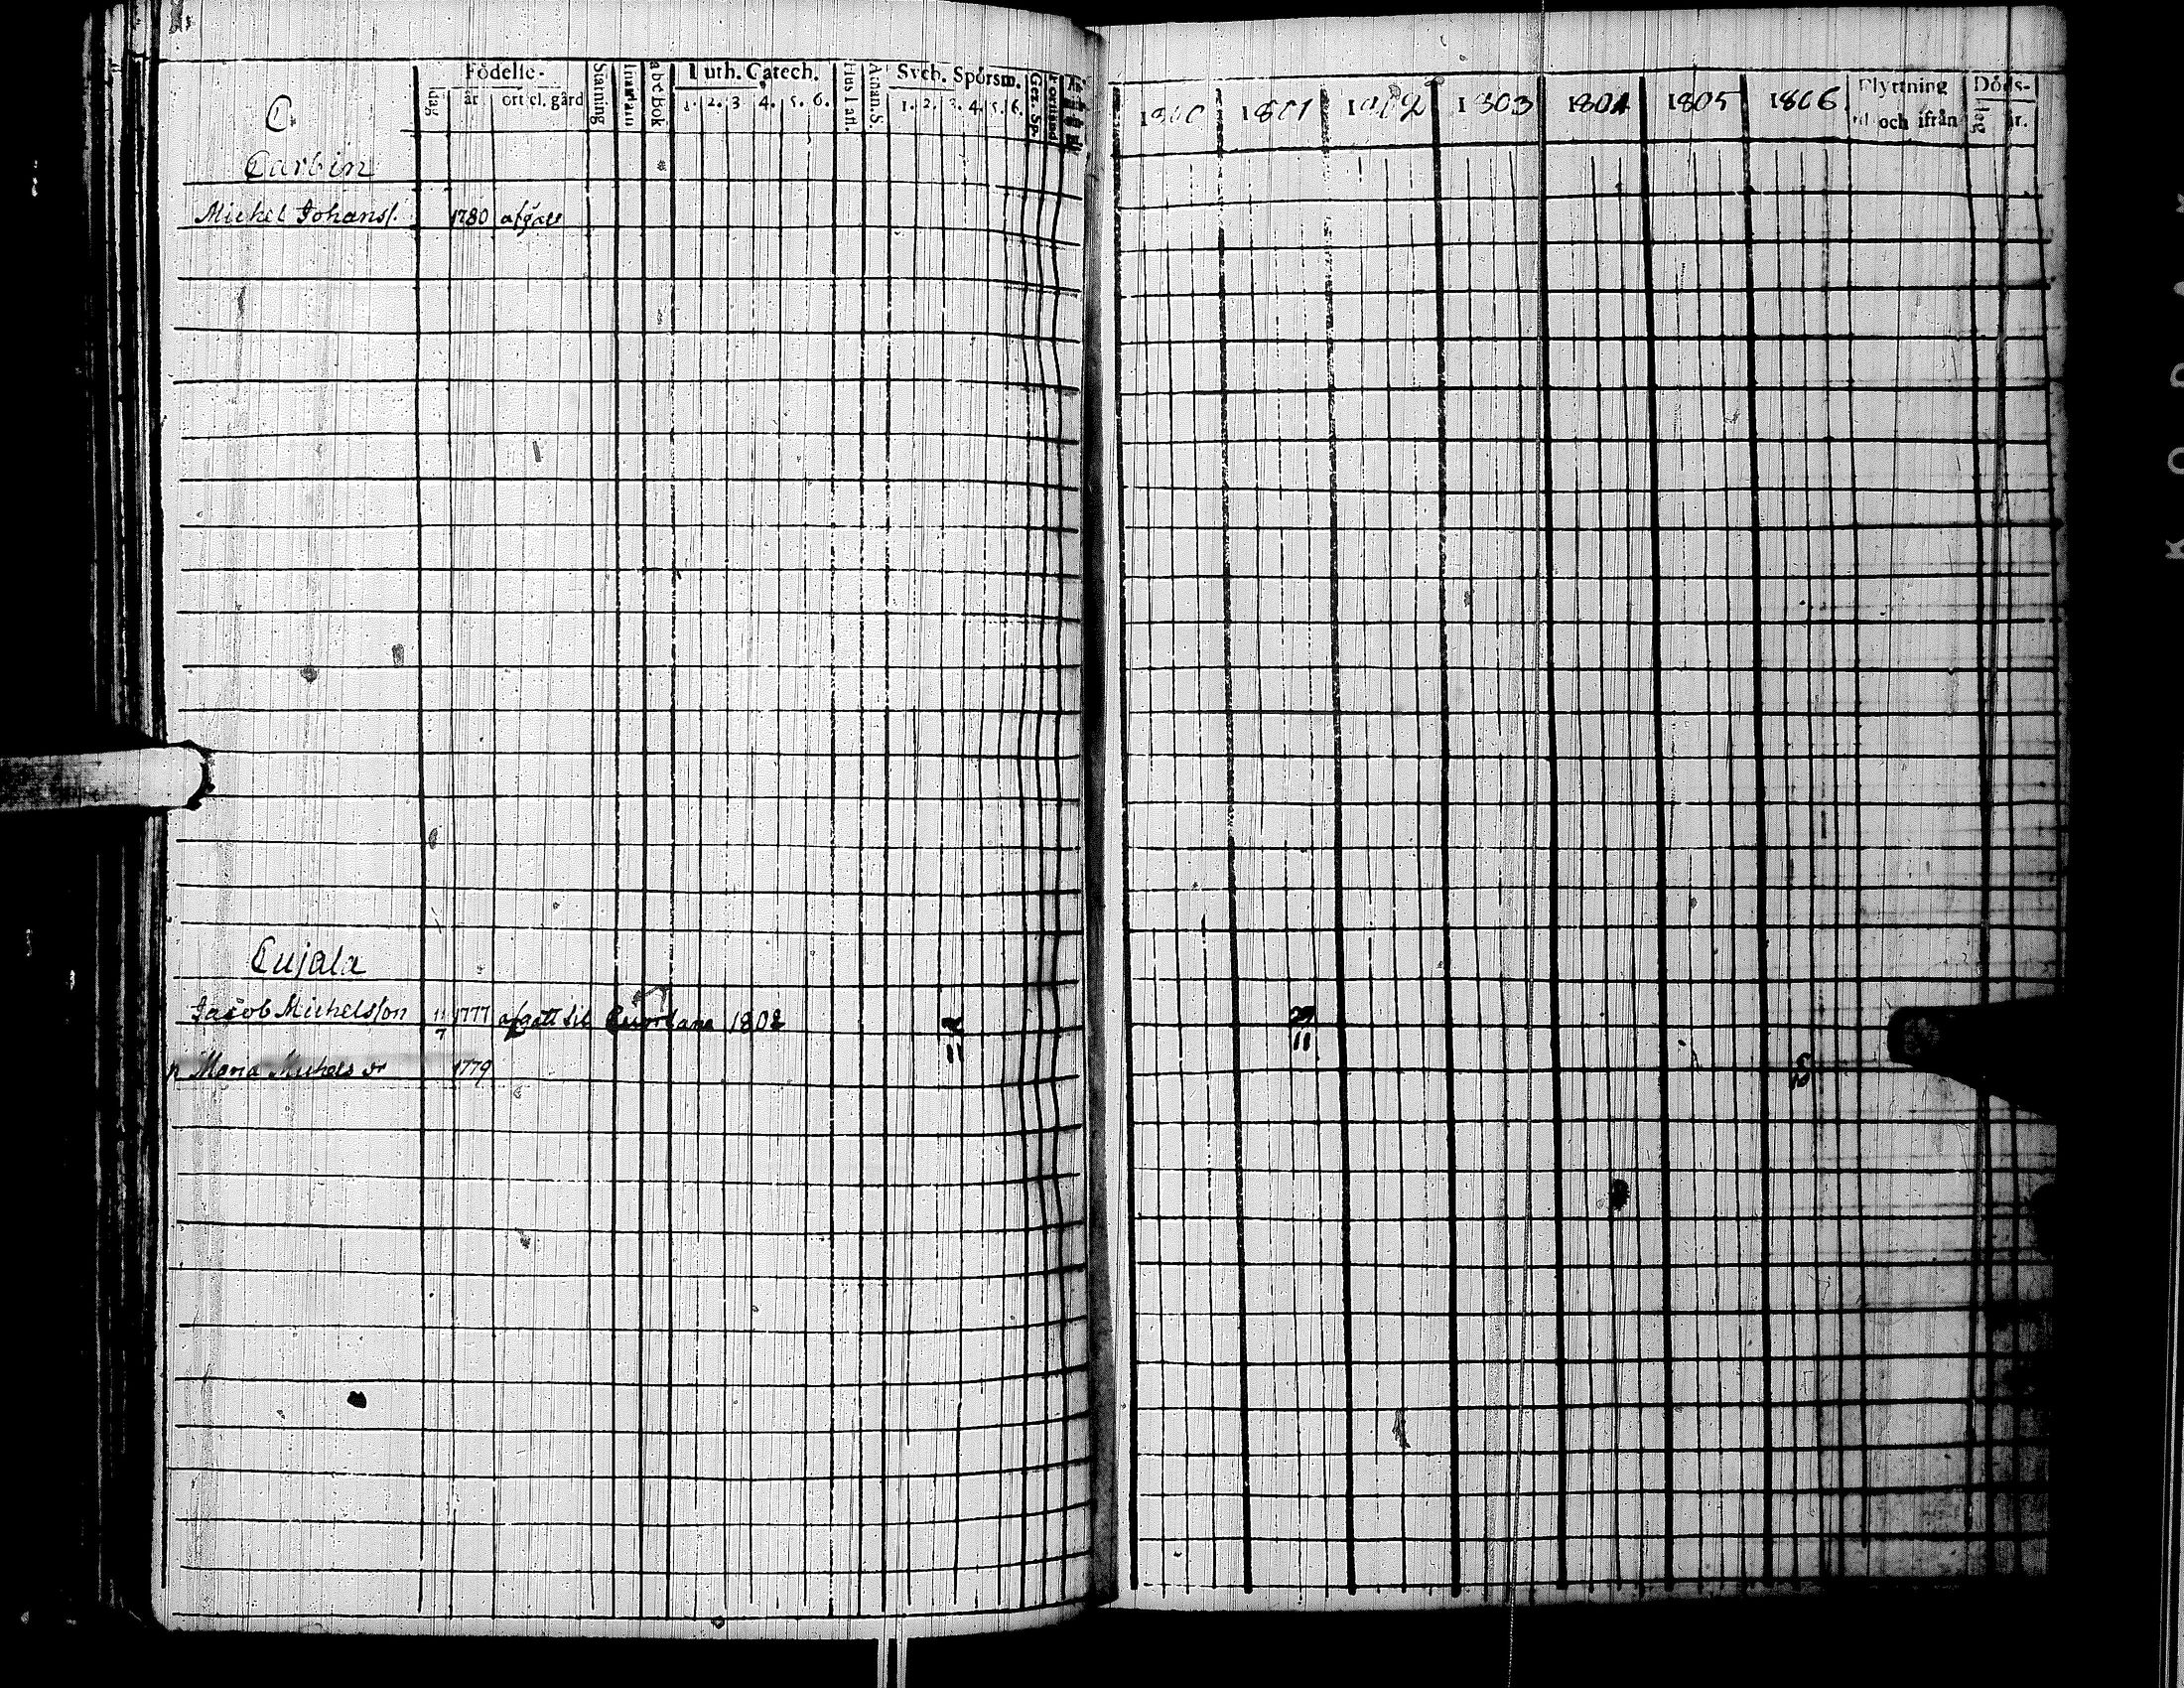 C.
Födelse-
dag
år
ort el. gård
Stafning
Innantill
a b c bok
Luth. Catech.
1. 2. 3 4. 5. 6.
Hus Tafl.
Athan. S.
Sveb. Spörsm.
1. 2. 3. 4. 5. 6.
1800 1801 1802 1803 1804 1805 1806
Flyttning
til och ifrån
Döds-
dag
år.
Carbin
Michel Johanss. 1780 afgått
Cujala
Jacob Michelsson 11/7 1777 afgått til 1802 29/11
Maria Michels dr 1779
KODAK